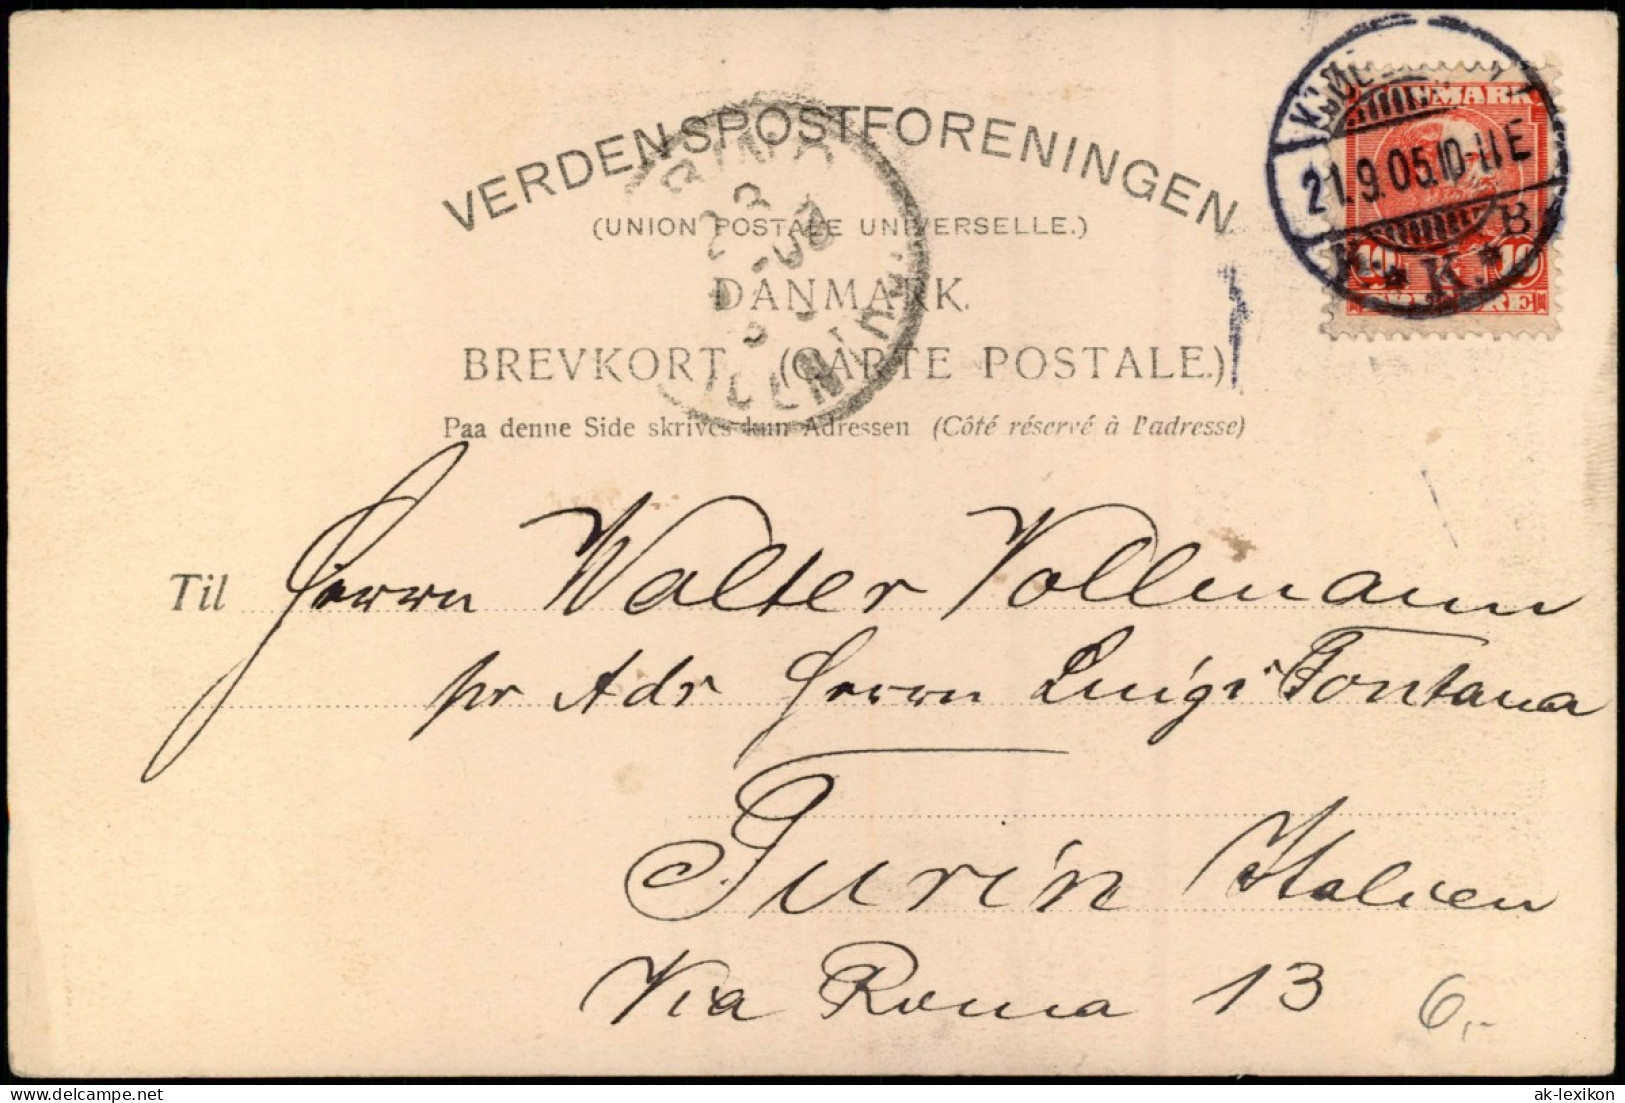 VERDENSPOSTFORENINGEN
(UNION POSTALE UNIVERSELLE.)
DANMARK.
BREVKORT (CARTE POSTALE.)
Paa denne Side skrives kun Adressen (Côté réservé à l'adresse)
21.9.05.10-11E
K. * K. * B
DANMARK
10 10
23
Til Herrn Walter Vollmann
pr Adr Herrn Luigi Fontana
Turin Italien
Via Roma 13
6,-
ak-lexikon